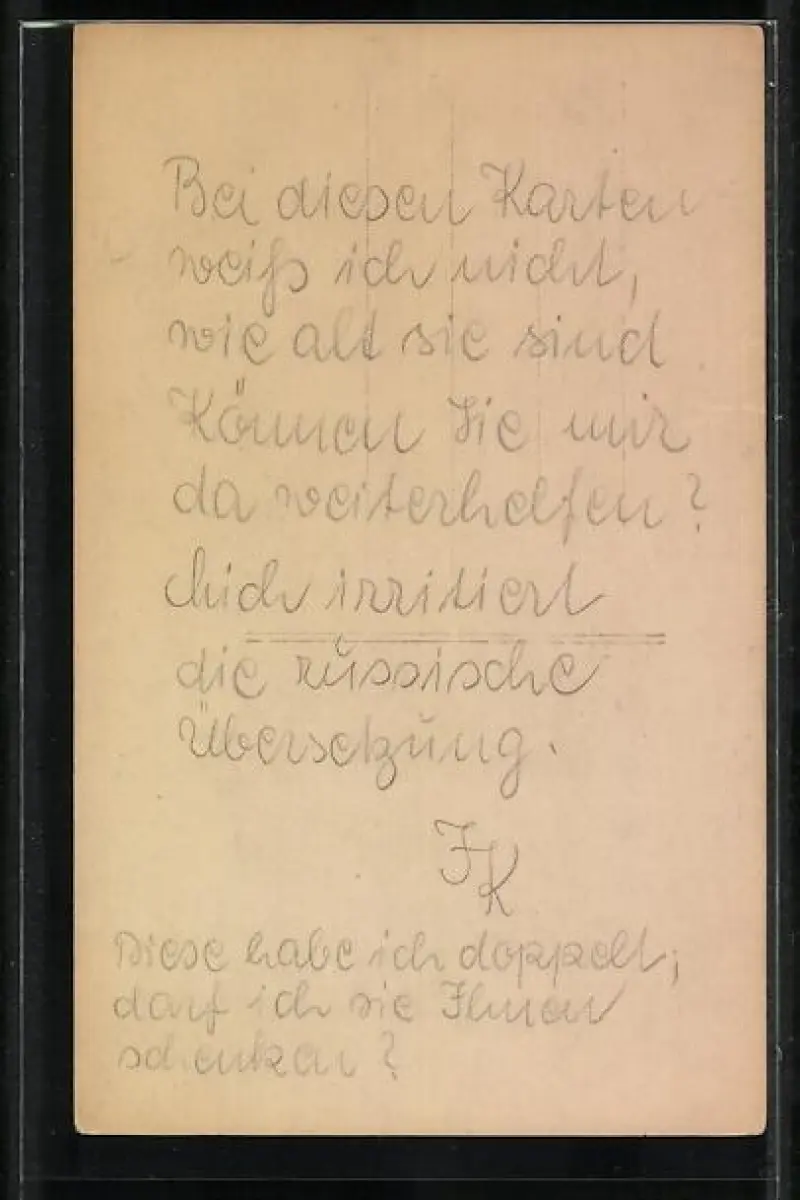 Bei diesen Karten
weiß ich nicht,
wie alt sie sind
Können Sie mir
da weiterhelfen?
Mich irritiert
die russische
Übersetzung.
JK
Diese habe ich doppelt;
darf ich sie Ihnen
schenken?